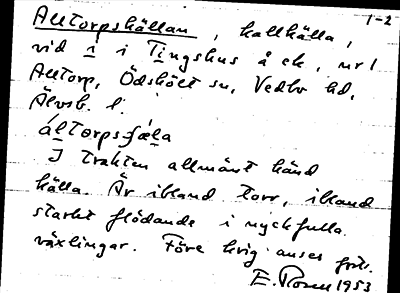 Alltorpskällan, kallkälla, 1-2
vid i i Tingshus å ek, nr 1
Alltorp, Ödskölt sn, Vedbo hd,
Älvsb. l.
áltorpsçæla
I trakten allmänt känd
källa. Är ibland torr, ibland
starkt flödande i nyckfulla
växlingar. Före krig anses
E. Rosen 1953